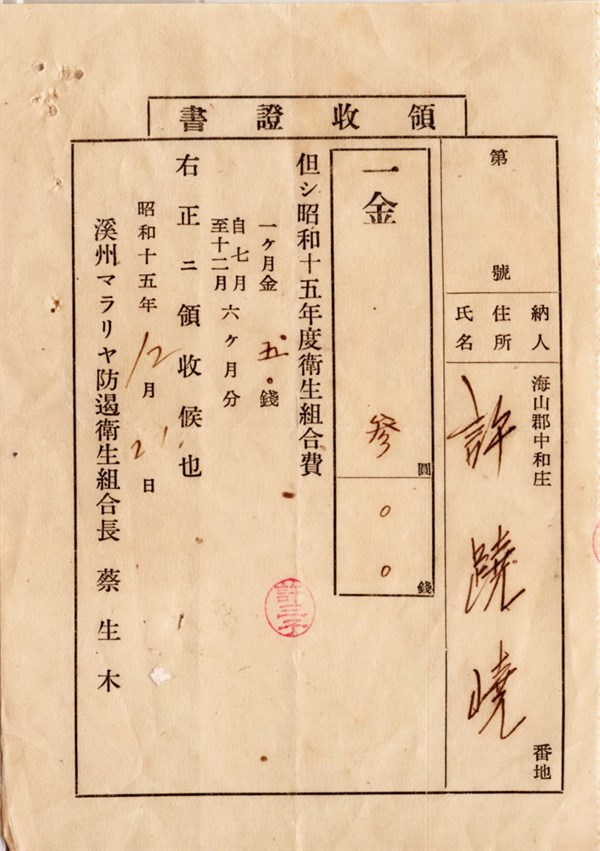 領收證書
第 號
納人 住所 氏名
海山郡中和庄 番地
許蹺嶢
一金 參圓〇〇錢
但シ昭和十五年度衛生組合費
一ヶ月金 五〇錢
自七月
至十二月
六ヶ月分
右正ニ領收候也
昭和十五年12月21日
溪州マラリヤ防遏衛生組合長 蔡生木